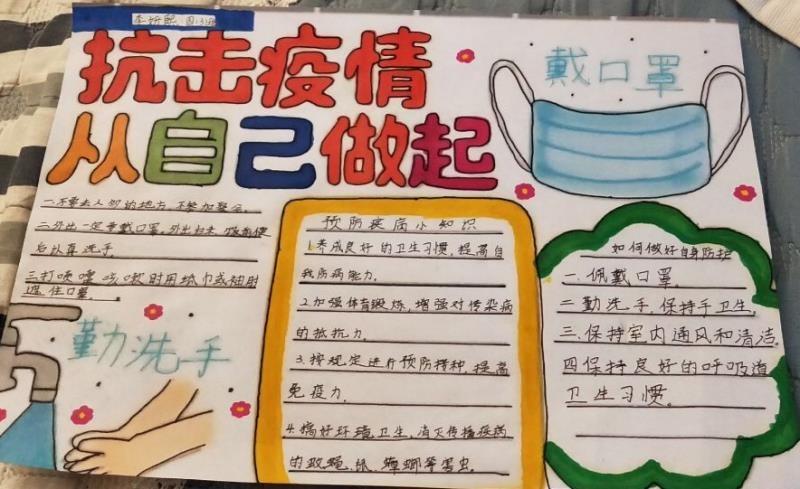 抗击疫情
从自己做起
戴口罩
一.不要去人多的地方,不参加聚会。
二.外出一定要戴口罩,外出归来,饭前便
后认真洗手。
三.打喷嚏咳嗽时用纸巾或袖肘
遮住口鼻。
勤洗手
预防疾病小知识
1.养成良好的卫生习惯,提高自
我防病能力.
2.加强体育锻炼,增强对传染病
的抵抗力.
3.按规定进行预防接种,提高
免疫力.
4.搞好环境卫生,消灭传播疾病
的蚊蝇、鼠、蟑螂等害虫.
如何做好自身防护
一.佩戴口罩.
二勤洗手,保持手卫生.
三.保持室内通风和清洁.
四保持良好的呼吸道
卫生习惯。